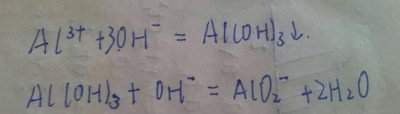 Al³⁺ + 3OH⁻ = Al(OH)₃↓.
Al(OH)₃ + OH⁻ = AlO₂⁻ + 2H₂O